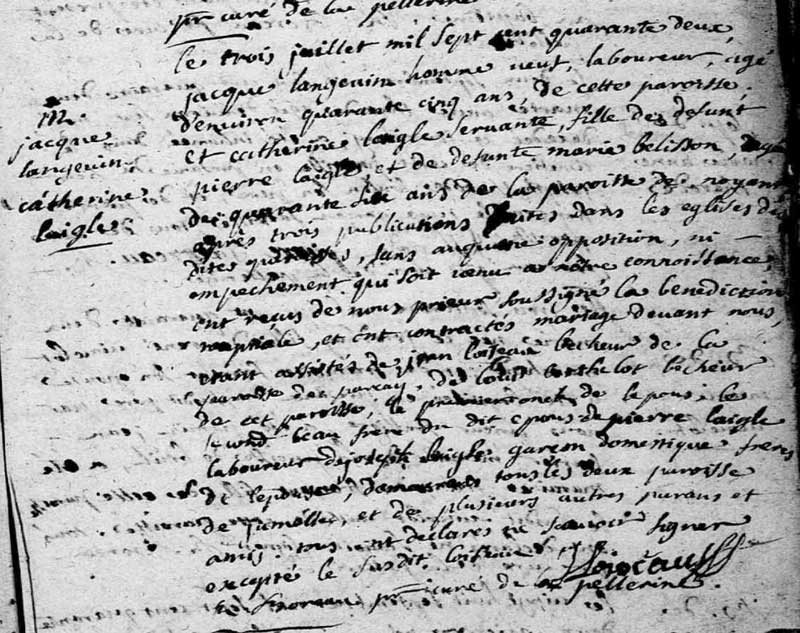 pr curé de la pellerine
le trois juillet mil sept cent quarante deux,
jacque langevin homme veuf, laboureur, agé
d'environ quarante cinq ans, de cette paroisse.
M.
jacque
langevin
catherine
laigle
et catherine laigle servante, fille de defunt
pierre laigle et de defunte marie belisson, agée
de quarante six ans de la paroisse de noyant
après trois publications faites dans les eglises des
dites paroisses, sans auqune opposition, ni
empechement qui soit venu a notre connoissance,
ont reçus de nous prieur soussigné la benediction
nuptiale, et ont contractés mariage devant nous,
etant assistés de jean loiseau becheur de la
paroisse de parcay, de louis berthelot becheur
de cet paroisse, le premier de lepous, le
second beau frere du dit epous de pierre laigle
laboureur de joseph laigle garcon domenique freres
de lepousée, tous les deux paroisse
de et de plusieurs autres parans et
amis tous ont declarés ne scavoir signer
excepté le susdit loiseau Loiseau
pr curé de la pellerine.